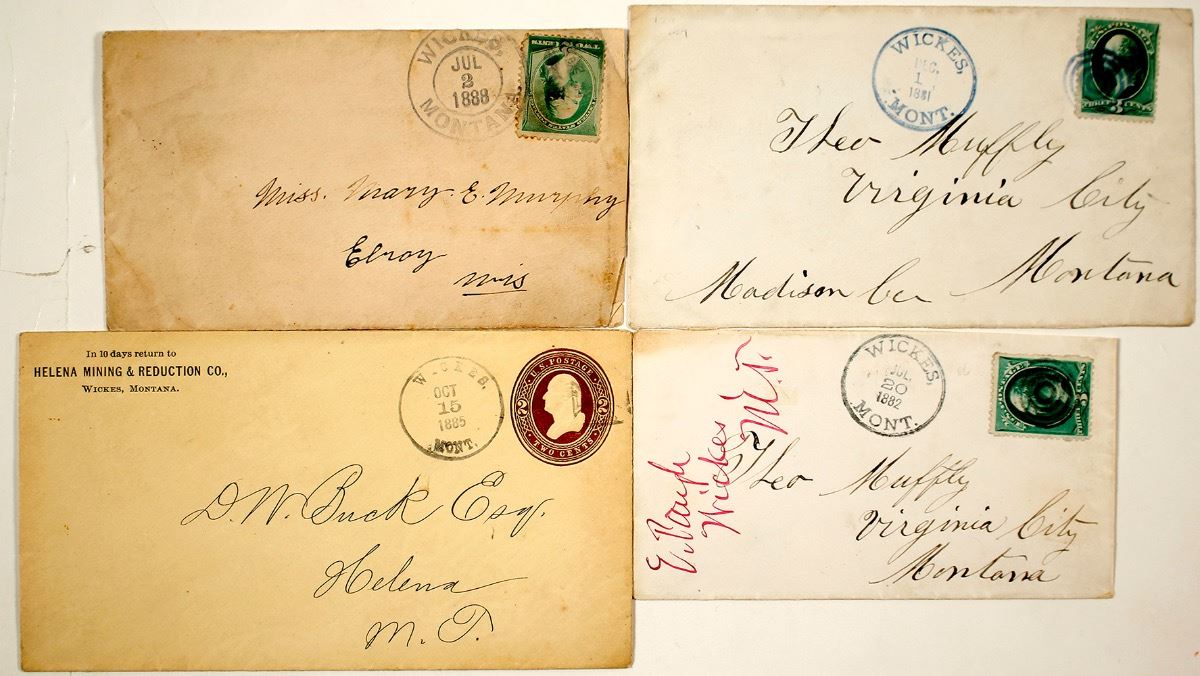 WICKES,
JUL
2
1888
MONTANA
Miss. Mary. E. Murphy
Elroy
Wis
WICKES,
DEC.
1
1881
MONT.
THREE CENTS
Theo Muffly
Virginia City
Madison Co Montana
In 10 days return to
HELENA MINING & REDUCTION CO.,
WICKES, MONTANA.
WICKES,
OCT
15
1885
MONT.
U.S. POSTAGE
2 2
TWO CENTS
D. W. Buck Esq.
Helena
M. T.
WICKES,
JUL.
20
1882
MONT.
Theo Muffly
Virginia City
Montana
Wickes
M.T.